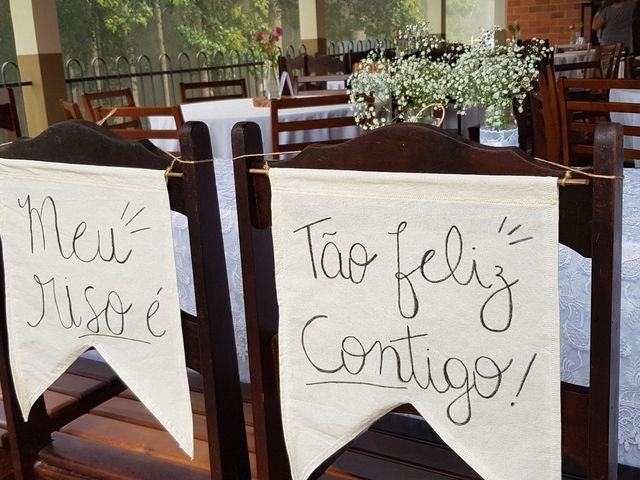 Meu
riso é
Tão feliz
Contigo!